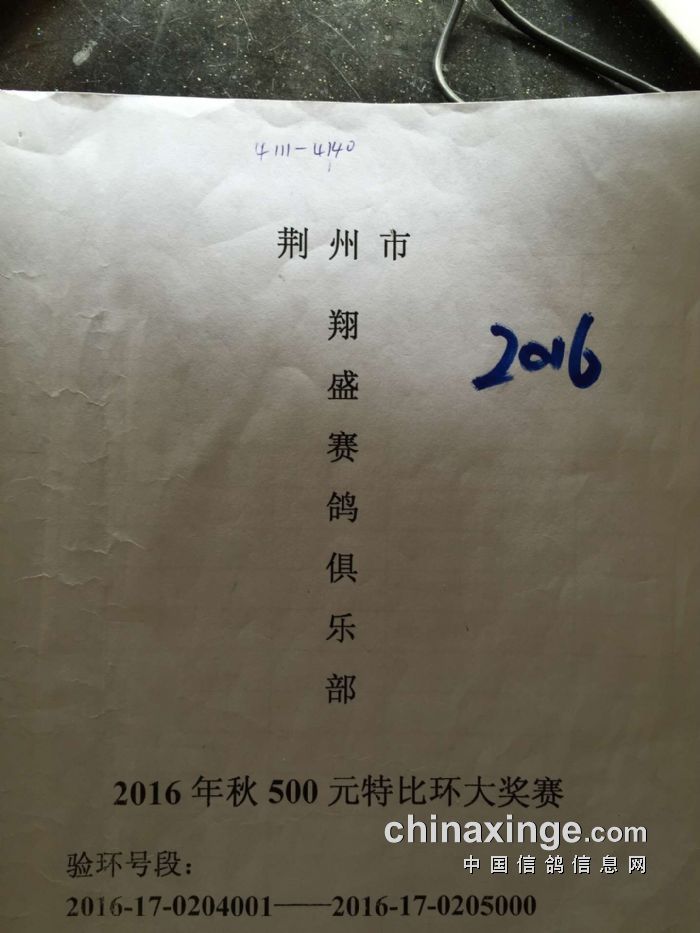 4111-4140
荆州市
2016
翔盛赛鸽俱乐部
2016年秋500元特比环大奖赛
chinaxinge.com
中国信鸽信息网
验环号段：
2016-17-0204001——2016-17-0205000